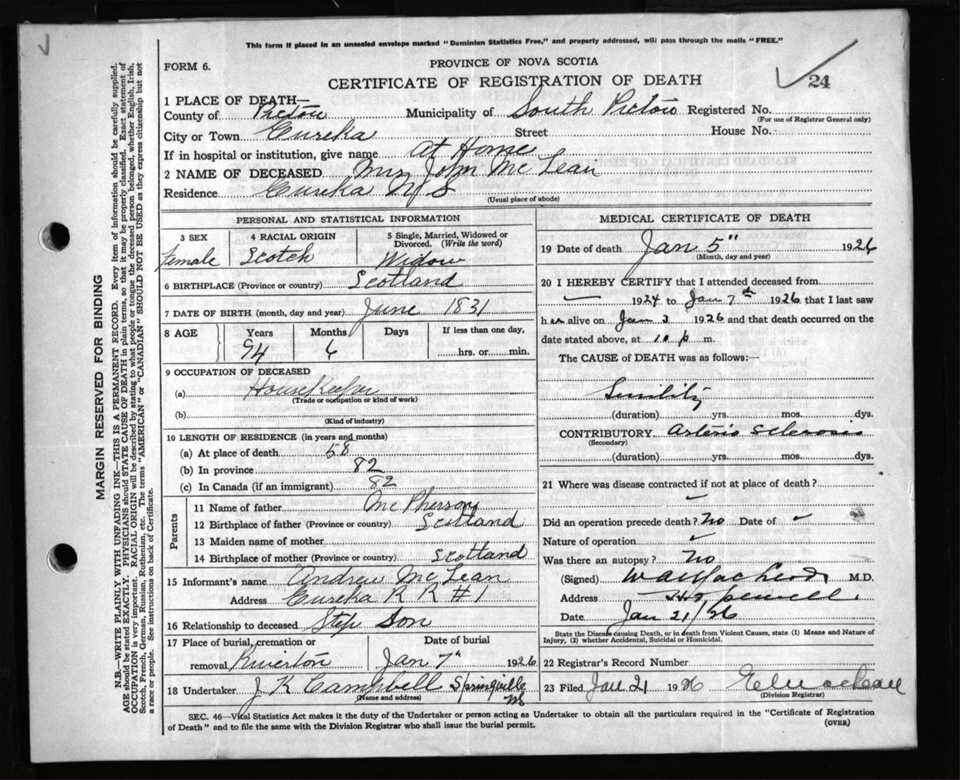 This form if placed in an unsealed envelope marked "Dominion Statistics Free," and properly addressed, will pass through the mails "FREE."
FORM 6.
PROVINCE OF NOVA SCOTIA
CERTIFICATE OF REGISTRATION OF DEATH
24
1 PLACE OF DEATH—
County of Pictou Municipality of South Pictou Registered No.
(For use of Registrar General only)
City or Town Eureka Street House No.
If in hospital or institution, give name at Home
2 NAME OF DECEASED Mrs John McLean
Residence Eureka N S
(Usual place of abode)
PERSONAL AND STATISTICAL INFORMATION
3 SEX 4 RACIAL ORIGIN 5 Single, Married, Widowed or Divorced. (Write the word)
Female Scotch Widow
6 BIRTHPLACE (Province or country) Scotland
7 DATE OF BIRTH (month, day and year) June 1831
8 AGE Years Months Days If less than one day,
94 6 hrs. or min.
9 OCCUPATION OF DECEASED
(a) HouseKeeper
(Trade or occupation or kind of work)
(b)
(Kind of industry)
10 LENGTH OF RESIDENCE (in years and months)
(a) At place of death 58
(b) In province 82
(c) In Canada (if an immigrant) 82
Parents
11 Name of father McPherson
12 Birthplace of father (Province or country) Scotland
13 Maiden name of mother
14 Birthplace of mother (Province or country) Scotland
15 Informant's name Andrew McLean
Address Eureka R R #1
16 Relationship to deceased Step Son
17 Place of burial, cremation or Date of burial
removal Riverton Jan 7th 1926
18 Undertaker J K Campbell Springville NS
(Name and address)
MEDICAL CERTIFICATE OF DEATH
19 Date of death Jan 5" 1926
(Month, day and year)
20 I HEREBY CERTIFY that I attended deceased from
— 1924 to Jan 7th 1926 that I last saw
her alive on Jan 3 1926 and that death occurred on the
date stated above, at 10 p m.
The CAUSE of DEATH was as follows:—
Senility
(duration) yrs. mos. dys.
CONTRIBUTORY Arterio Sclerosis
(Secondary)
(duration) yrs. mos. dys.
21 Where was disease contracted if not at place of death?
Did an operation precede death? No Date of
Nature of operation
Was there an autopsy? No
(Signed) M.D.
Address Hopewell.
Date Jan 21/26
State the Disease causing Death, or in death from Violent Causes, state (1) Means and Nature of
Injury, (2) whether Accidental, Suicidal or Homicidal.
22 Registrar's Record Number
23 Filed Jan 21 1926
(Division Registrar)
SEC. 46—Vital Statistics Act makes it the duty of the Undertaker or person acting as Undertaker to obtain all the particulars required in the "Certificate of Registration
of Death" and to file the same with the Division Registrar who shall issue the burial permit.
(OVER)
MARGIN RESERVED FOR BINDING
N.B.—WRITE PLAINLY WITH UNFADING INK—THIS IS A PERMANENT RECORD. Every item of information should be carefully supplied.
AGE should be stated EXACTLY. PHYSICIANS should STATE CAUSE OF DEATH in plain terms, so that it may be properly classified. Exact statement of
OCCUPATION is very important. RACIAL ORIGIN will be described by stating to what people or tongue the deceased person belonged, whether English, Irish,
Scotch, French, German, Russian, Ruthenian, etc. The terms "AMERICAN" or "CANADIAN" SHOULD NOT BE USED as they express citizenship but not
a race or people. See instructions on back of Certificate.